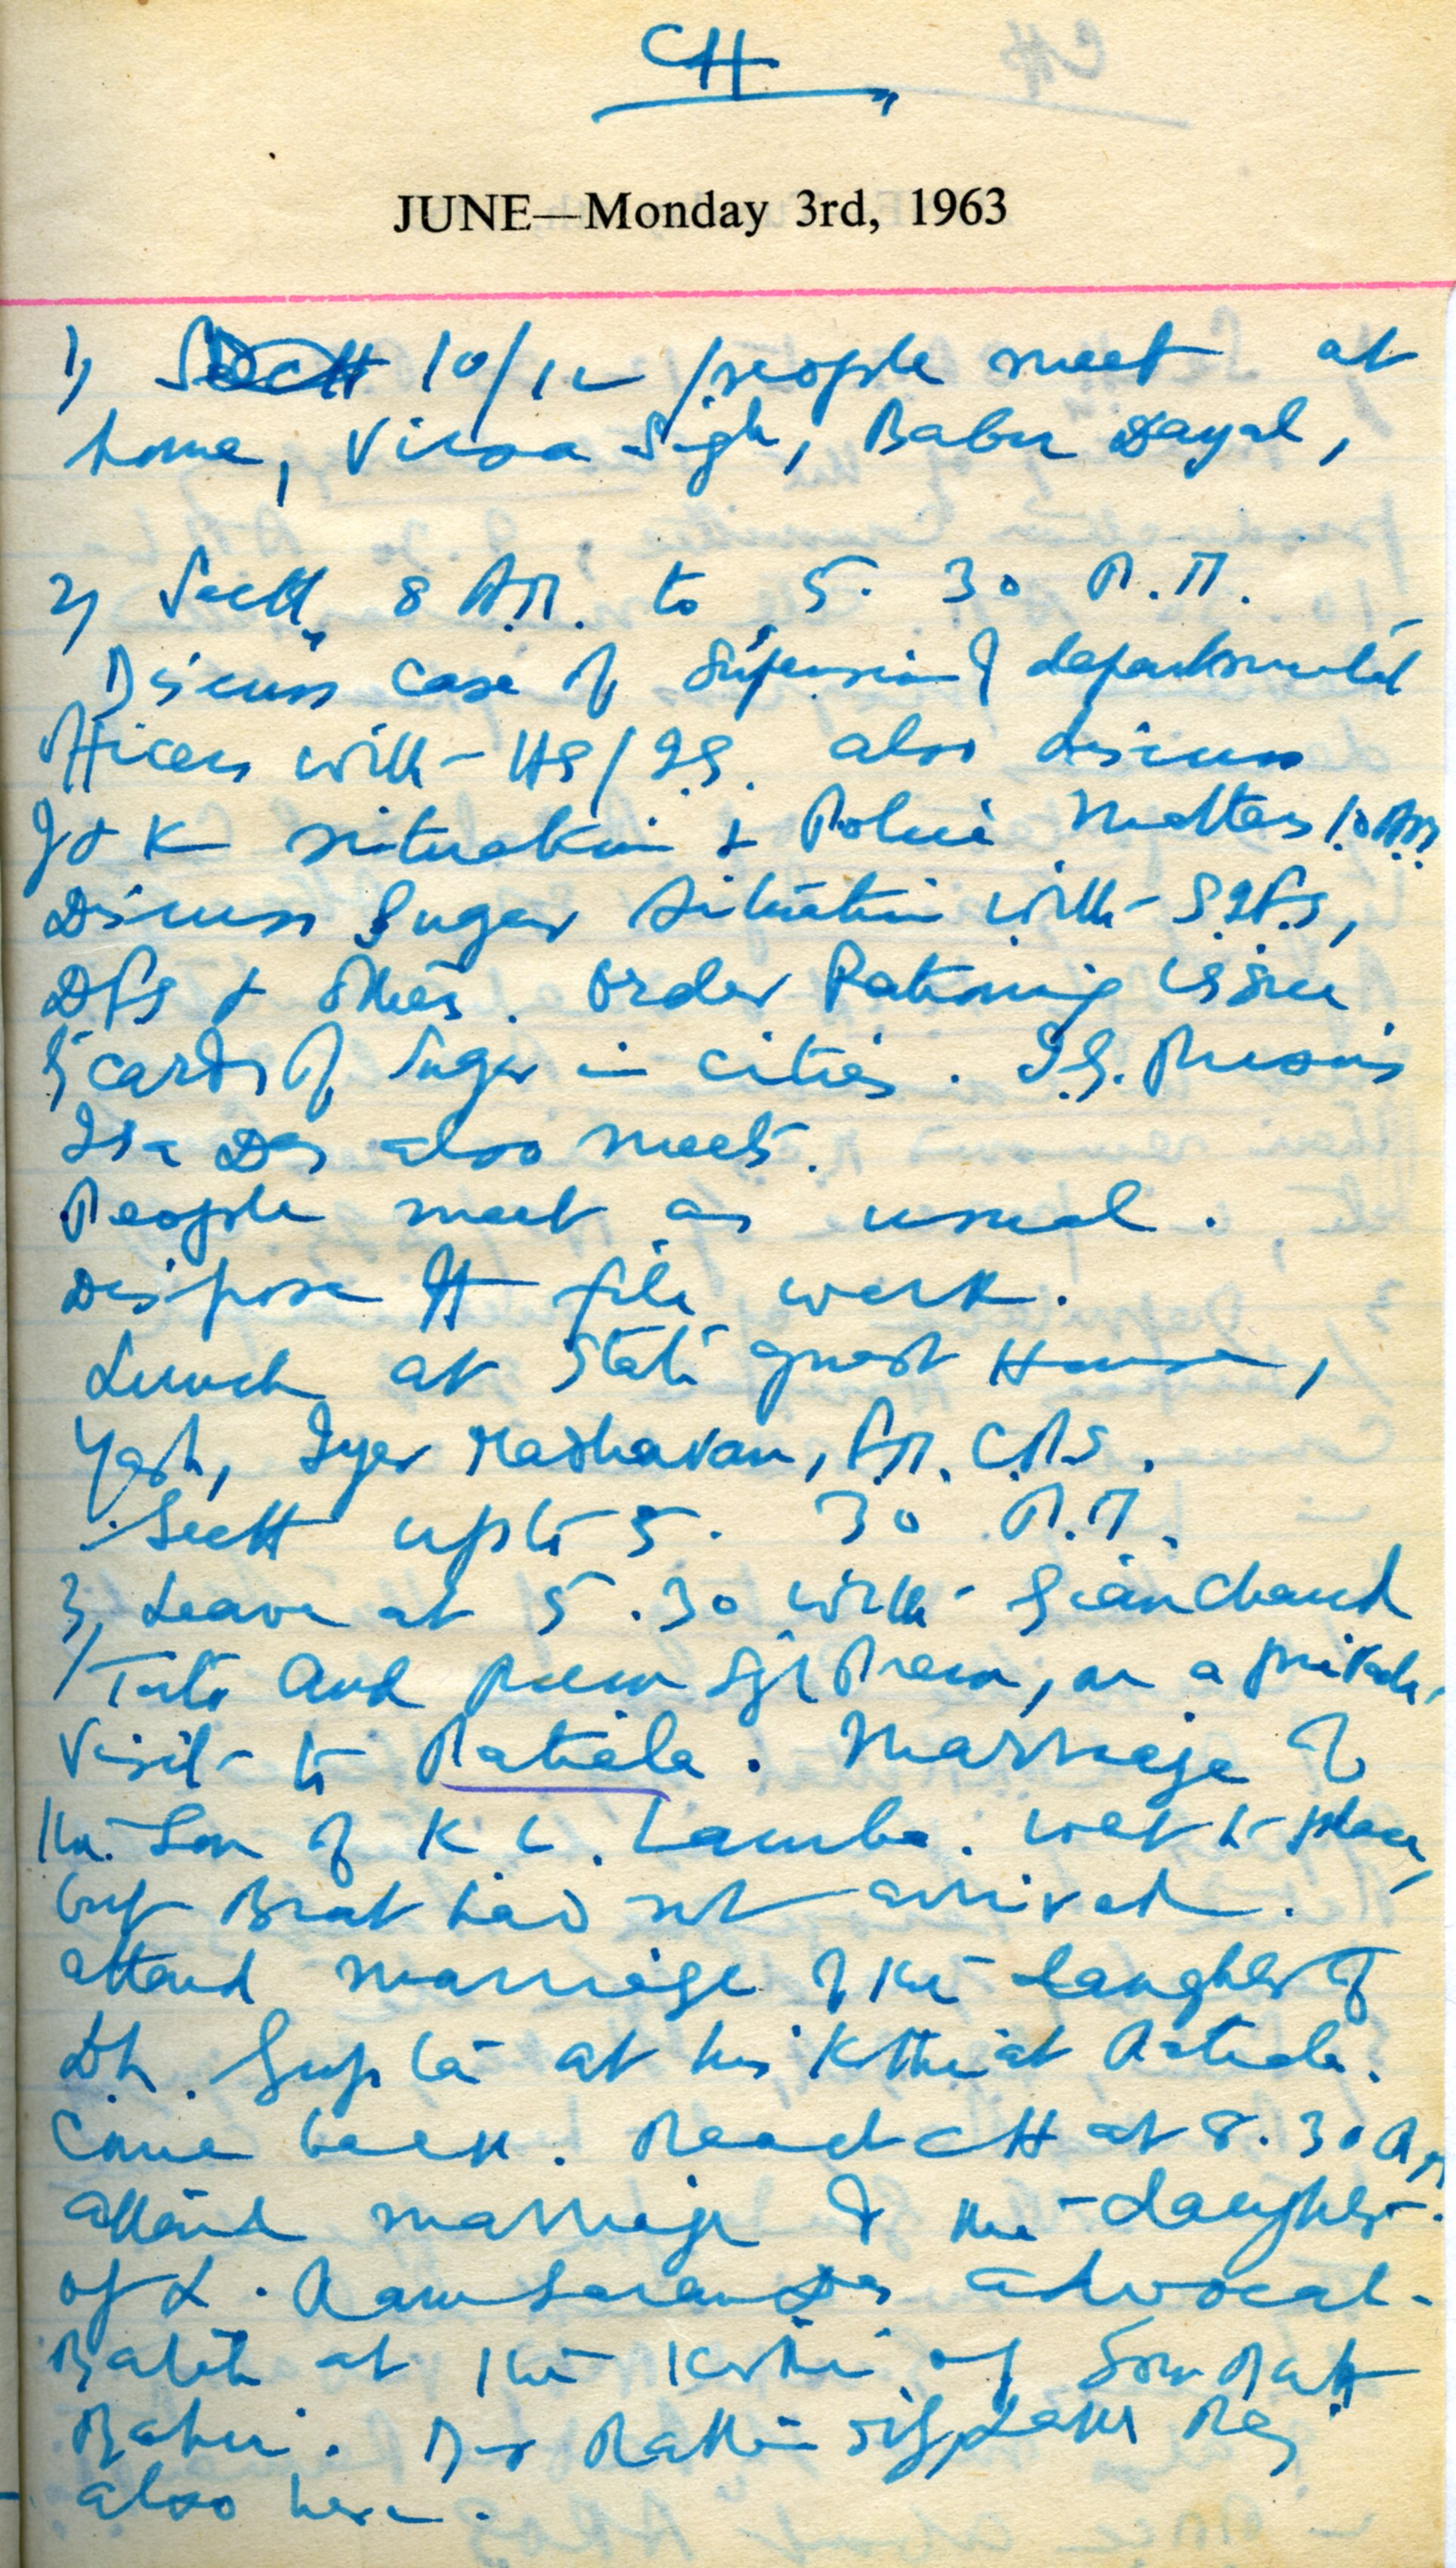 CH
JUNE—Monday 3rd, 1963
1) 10/12 people meet at
home, Virsa Sigh, Babu Dayal,
2) Sectt, 8 A.M. to 5.30 P.M.
Discuss case of departmental
officers with HS/IG. also discuss
J & K situation & Police Matters 10 AM.
Discuss Sugar situation with
DFS & others. Order Rationing issue
cards of Sugar in cities. I.G. Prisons
Das also meets.
People meet as usual.
Dispose off file work.
Lunch at State guest House,
Yash, Iyer Madhavan,
Sectt upto 5.30 P.M.
3) Leave at 5.30 with Gian Chand
and Prem, on a private
visit to Patiala. Marriage of
the Son of K. L. Lamba. went to place,
but Brat had not arrived.
attend marriage of the daughter of
Gupta at his Kothi at Patiala.
Come back. Reach CH at 8.30 P.M
attend marriage of the daughter
of L. Ram Saran Das advocate
at the Kothi of Som Datt
Bahri.
also here.